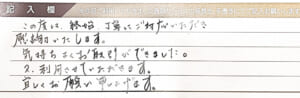 記入欄
この度は、終始丁寧にご対応いただき
感謝いたします。
気持ちよくお取引ができました。
又、利用させていただきます。
宜しくお願い申し上げます。